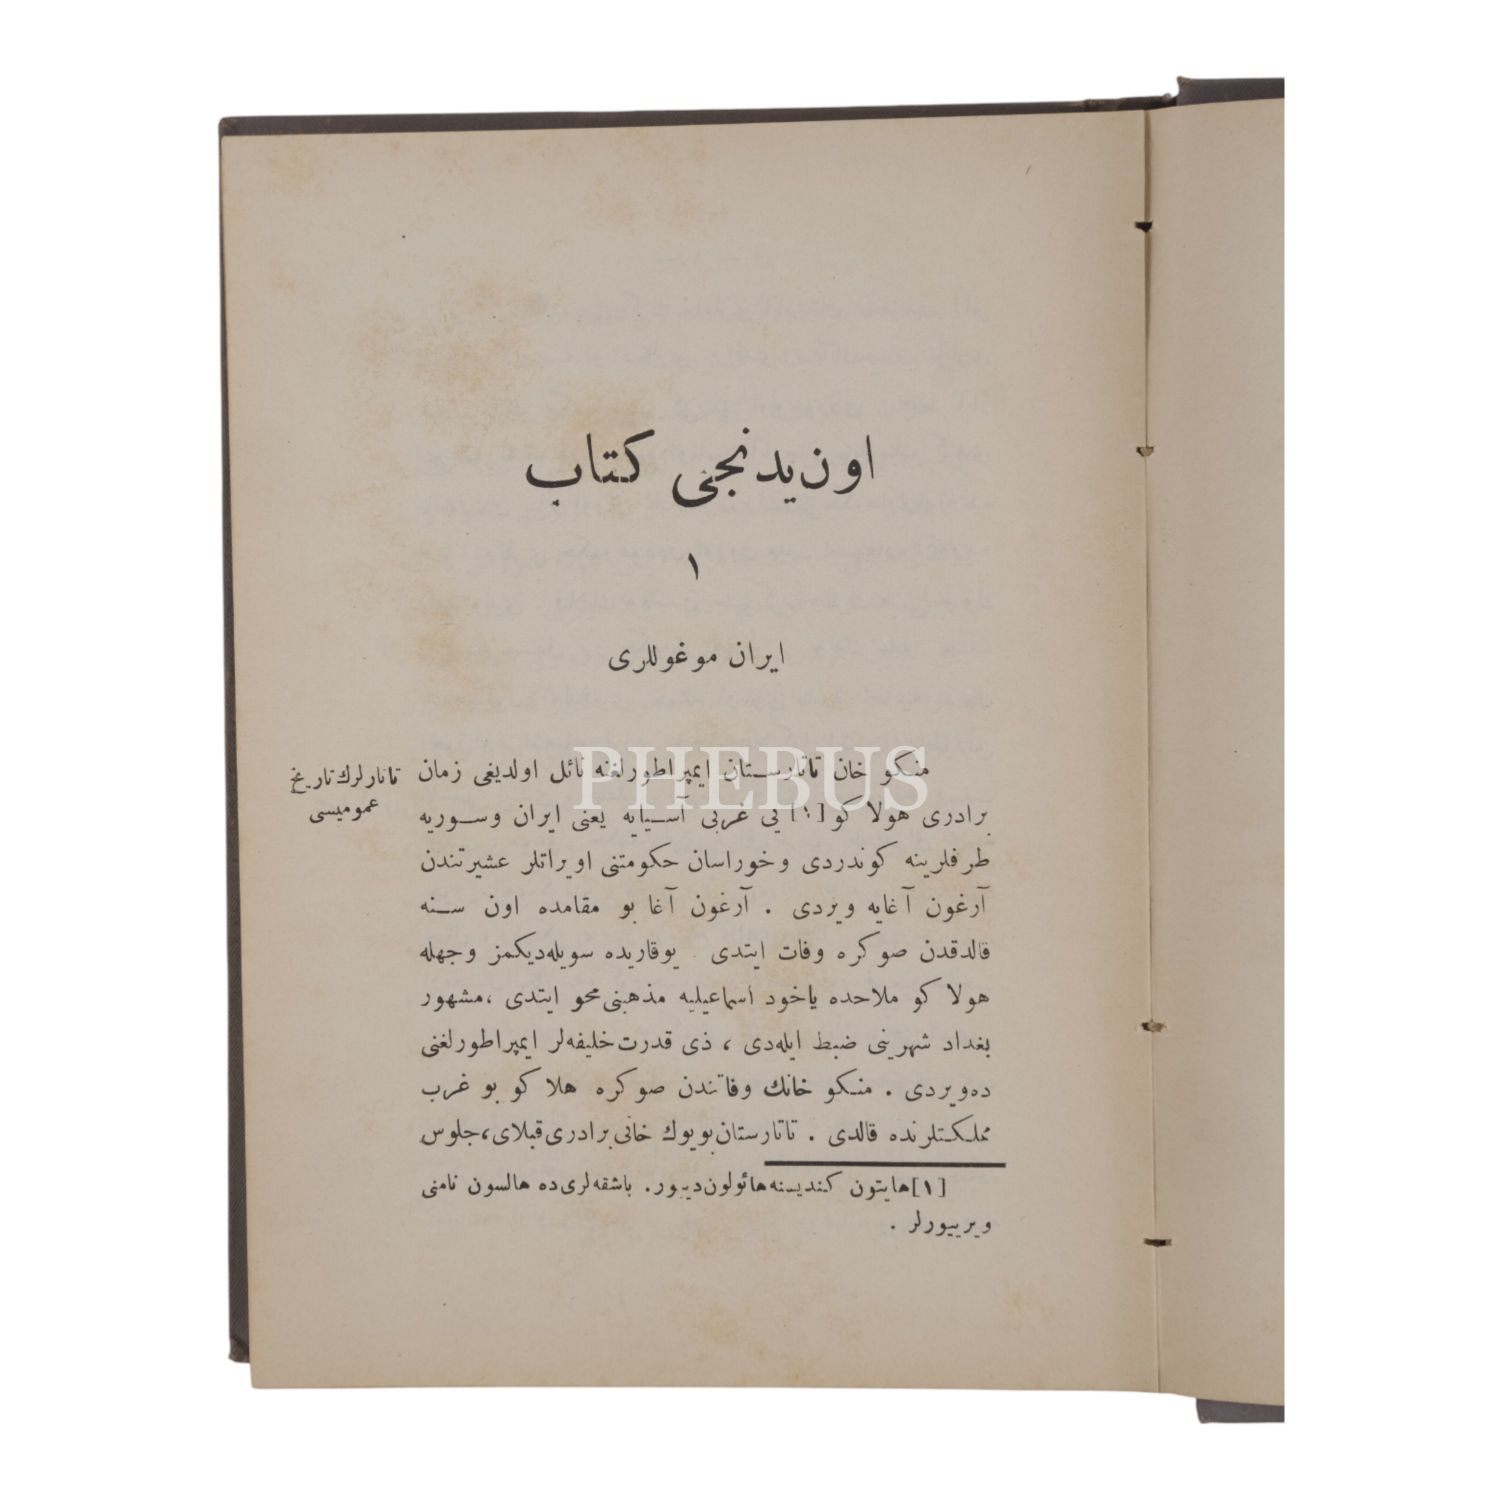 اون یدنجی کتاب
۱
ایران موغوللری
تاتارلرك تاریخ
عمومیسی
منکو خان تاتارستان ایمپراطورلغنه نائل اولدیغی زمان
برادری هولا کو [۱] یی غربی آسیایه یعنی ایران وسوریه
طرفلرینه کوندردی وخوراسان حکومتنی اویراتلر عشیرتندن
آرغون آغایه ویردی . آرغون آغا بو مقامده اون سنه
قالدقدن صوکره وفات ایتدی . یوقاریده سویله‌دیکمز وجهله
هولا کو ملاحده یاخود اسماعیلیه مذهبنی محو ایتدی ، مشهور
بغداد شهرینی ضبط ایله‌دی ، ذی قدرت خلیفه‌لر ایمپراطورلغنی
ده‌ویردی . منکو خانك وفاتندن صوکره هلا کو بو غرب
مملکتلرنده قالدی . تاتارستان بویوك خانی برادری قبلای، جلوس
[۱] هایتون کندیسنه هائولون دییور. باشقه‌لری ده هالسون نامنی
ویرییورلر .
PHEBUS